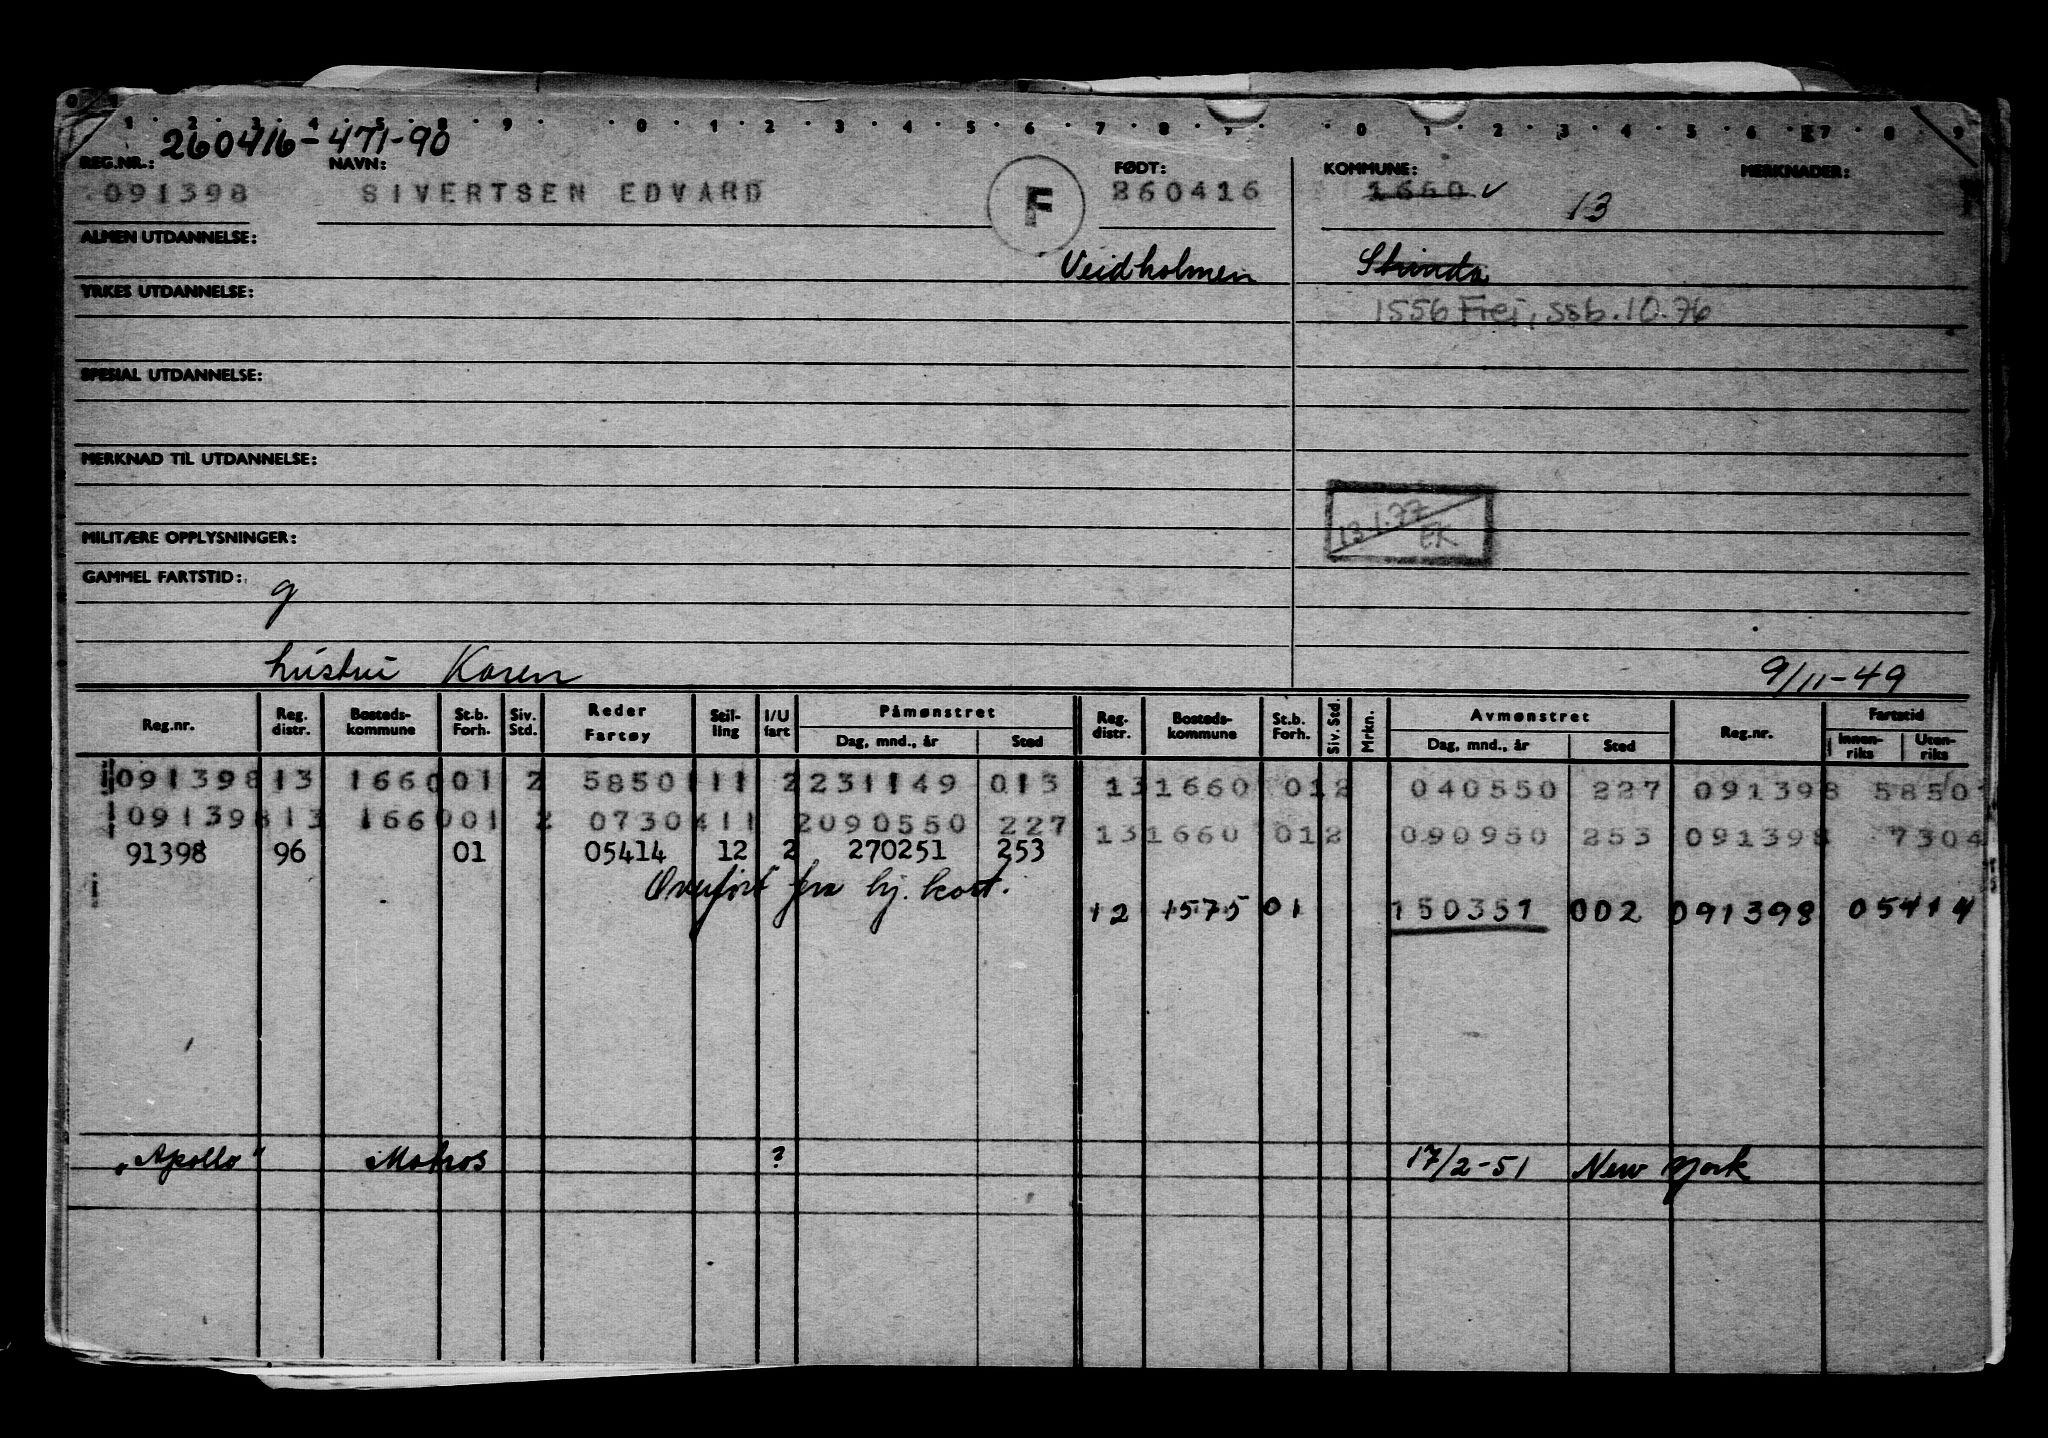 1 2 3 4 5 8 9 0 1 2 3 4 5 6 7 8 9 0 1 2 3 4 5 6 7 8 9
260416-471-90
REG.NR.: NAVN: FØDT: KOMMUNE: MERKNADER:
091398 SIVERTSEN EDVARD F 260416 1660 ✓ 13
ALMEN UTDANNELSE:
Veidholmen Strinda
YRKES UTDANNELSE:
1556 Frei, ssb. 10.76
SPESIAL UTDANNELSE:
MERKNAD TIL UTDANNELSE:
13.1.77 EK
MILITÆRE OPPLYSNINGER:
GAMMEL FARTSTID: g
hustru Karen 9/11-49
Reg.nr. Reg. distr. Bosteds-kommune St.b. Forh. Siv. Std. Reder Fartøy Stil-ling I/U fart Påmønstret Dag, mnd., år Sted Reg. distr. Bosteds-kommune St.b. Forh. Siv. Std. Mrkn. Avmønstret Dag, mnd., år Sted Reg.nr. Fartstid Innen-riks Uten-riks
091398 13 1660 01 2 58501 11 2 231149 013 13 1660 01 2 040550 227 091398 58501
091398 13 1660 01 2 07304 11 2 090550 227 13 1660 01 2 090950 253 091398 7304
91398 96 01 05414 12 2 270251 253
Overført fra hj. kort.
12 1575 01 150351 002 091398 05414
„Apollo" Matros ? 17/2-51 New York